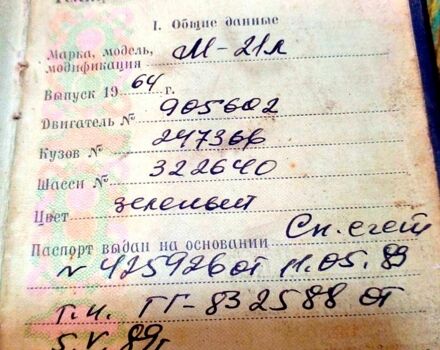 I. Общие данные
Марка, модель,
модификация М-21л
Выпуск 1964 г.
Двигатель № 905602
Кузов № 247366
Шасси № 322640
Цвет зеленый
Паспорт выдан на основании Сп. счет
N 425926 от 11.05.89
т.и. ГГ-832588 от
5.V.89г